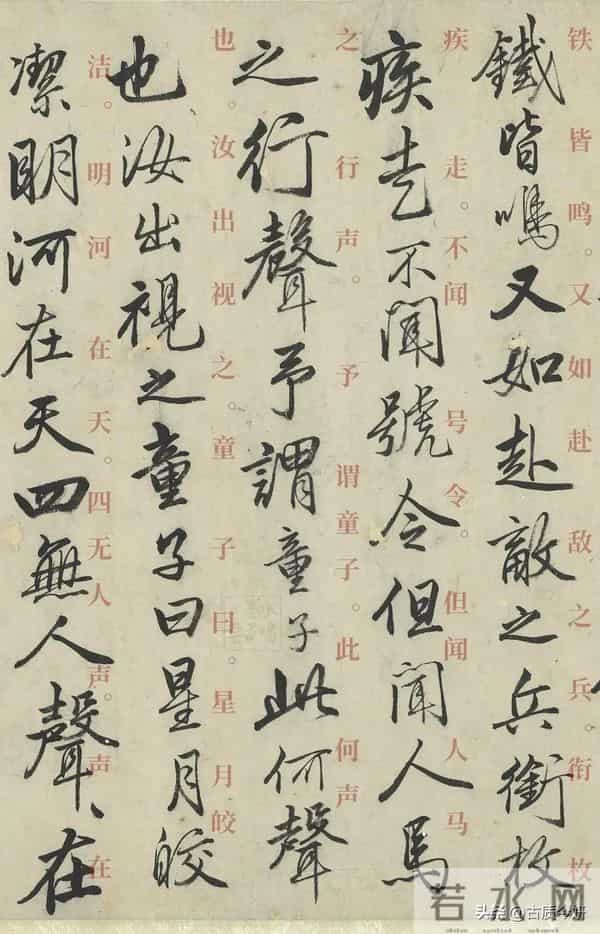 铁皆鸣。又如赴敌之兵。衔枚
鐵皆鳴又如赴敵之兵銜枚
疾走。不闻号令。但闻人马
疾走不聞號令但聞人馬
之行声。予谓童子。此何声
之行聲予謂童子此何聲
也。汝出视之。童子曰。星月皎
也汝出視之童子曰星月皎
洁。明河在天。四无人声。声在
潔明河在天四無人聲、在
若水网
头条 @古质今妍